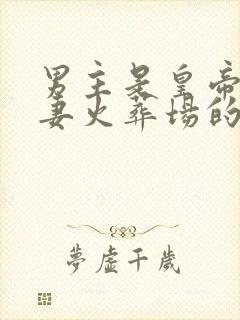 男主是皇帝
妻火葬场的
夢虚千歲